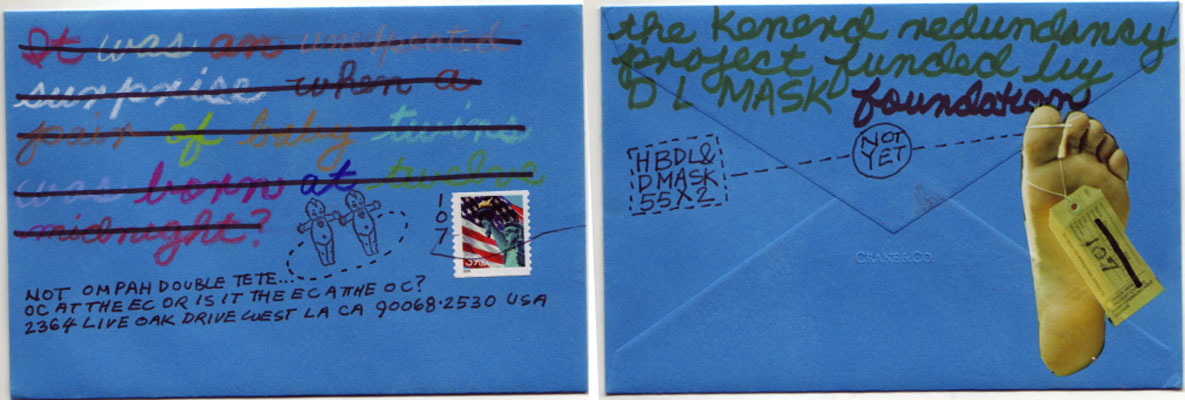 It was an unexpected
surprise when a
pair of baby twins
was born at twelve
midnight?
107
NOT OMPAH DOUBLE TETE...
OC AT THE EC OR IS IT THE EC ATTHE OC?
2364 LIVE OAK DRIVE WEST LA CA 90068·2530 USA
the Kenend redundancy
project funded by
D L MASK foundation
NOT
YET
HBDL&
DMASK
55X2
CRANE&CO.
107